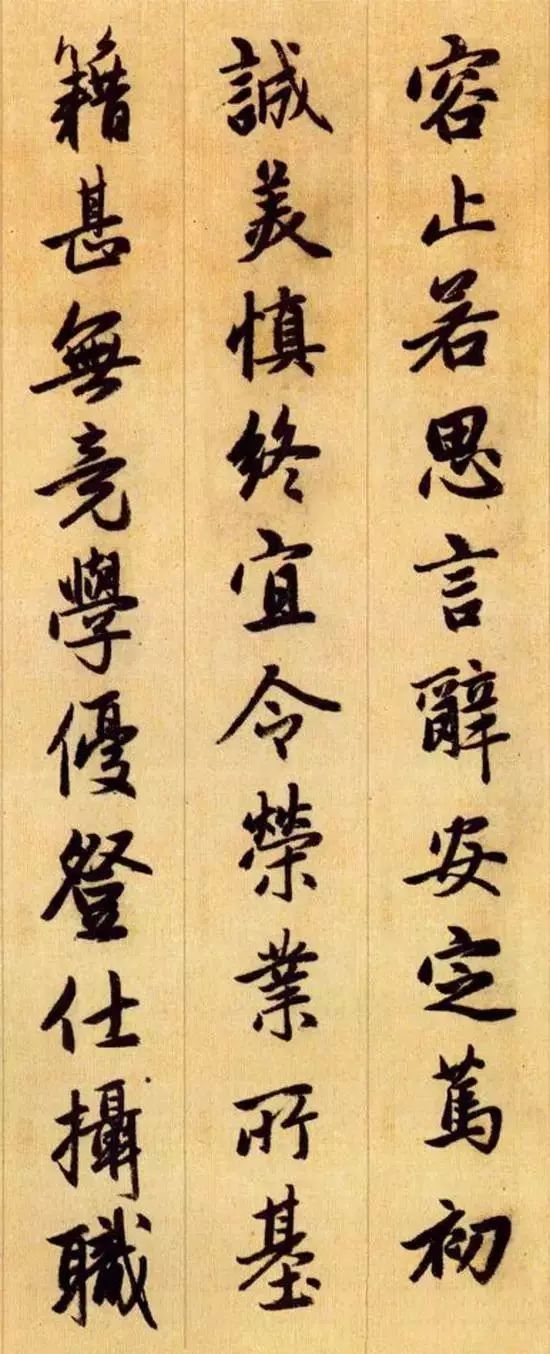 容止若思言辭安定篤初
誠美慎終宜令榮業所基
籍甚無竟學優登仕攝職